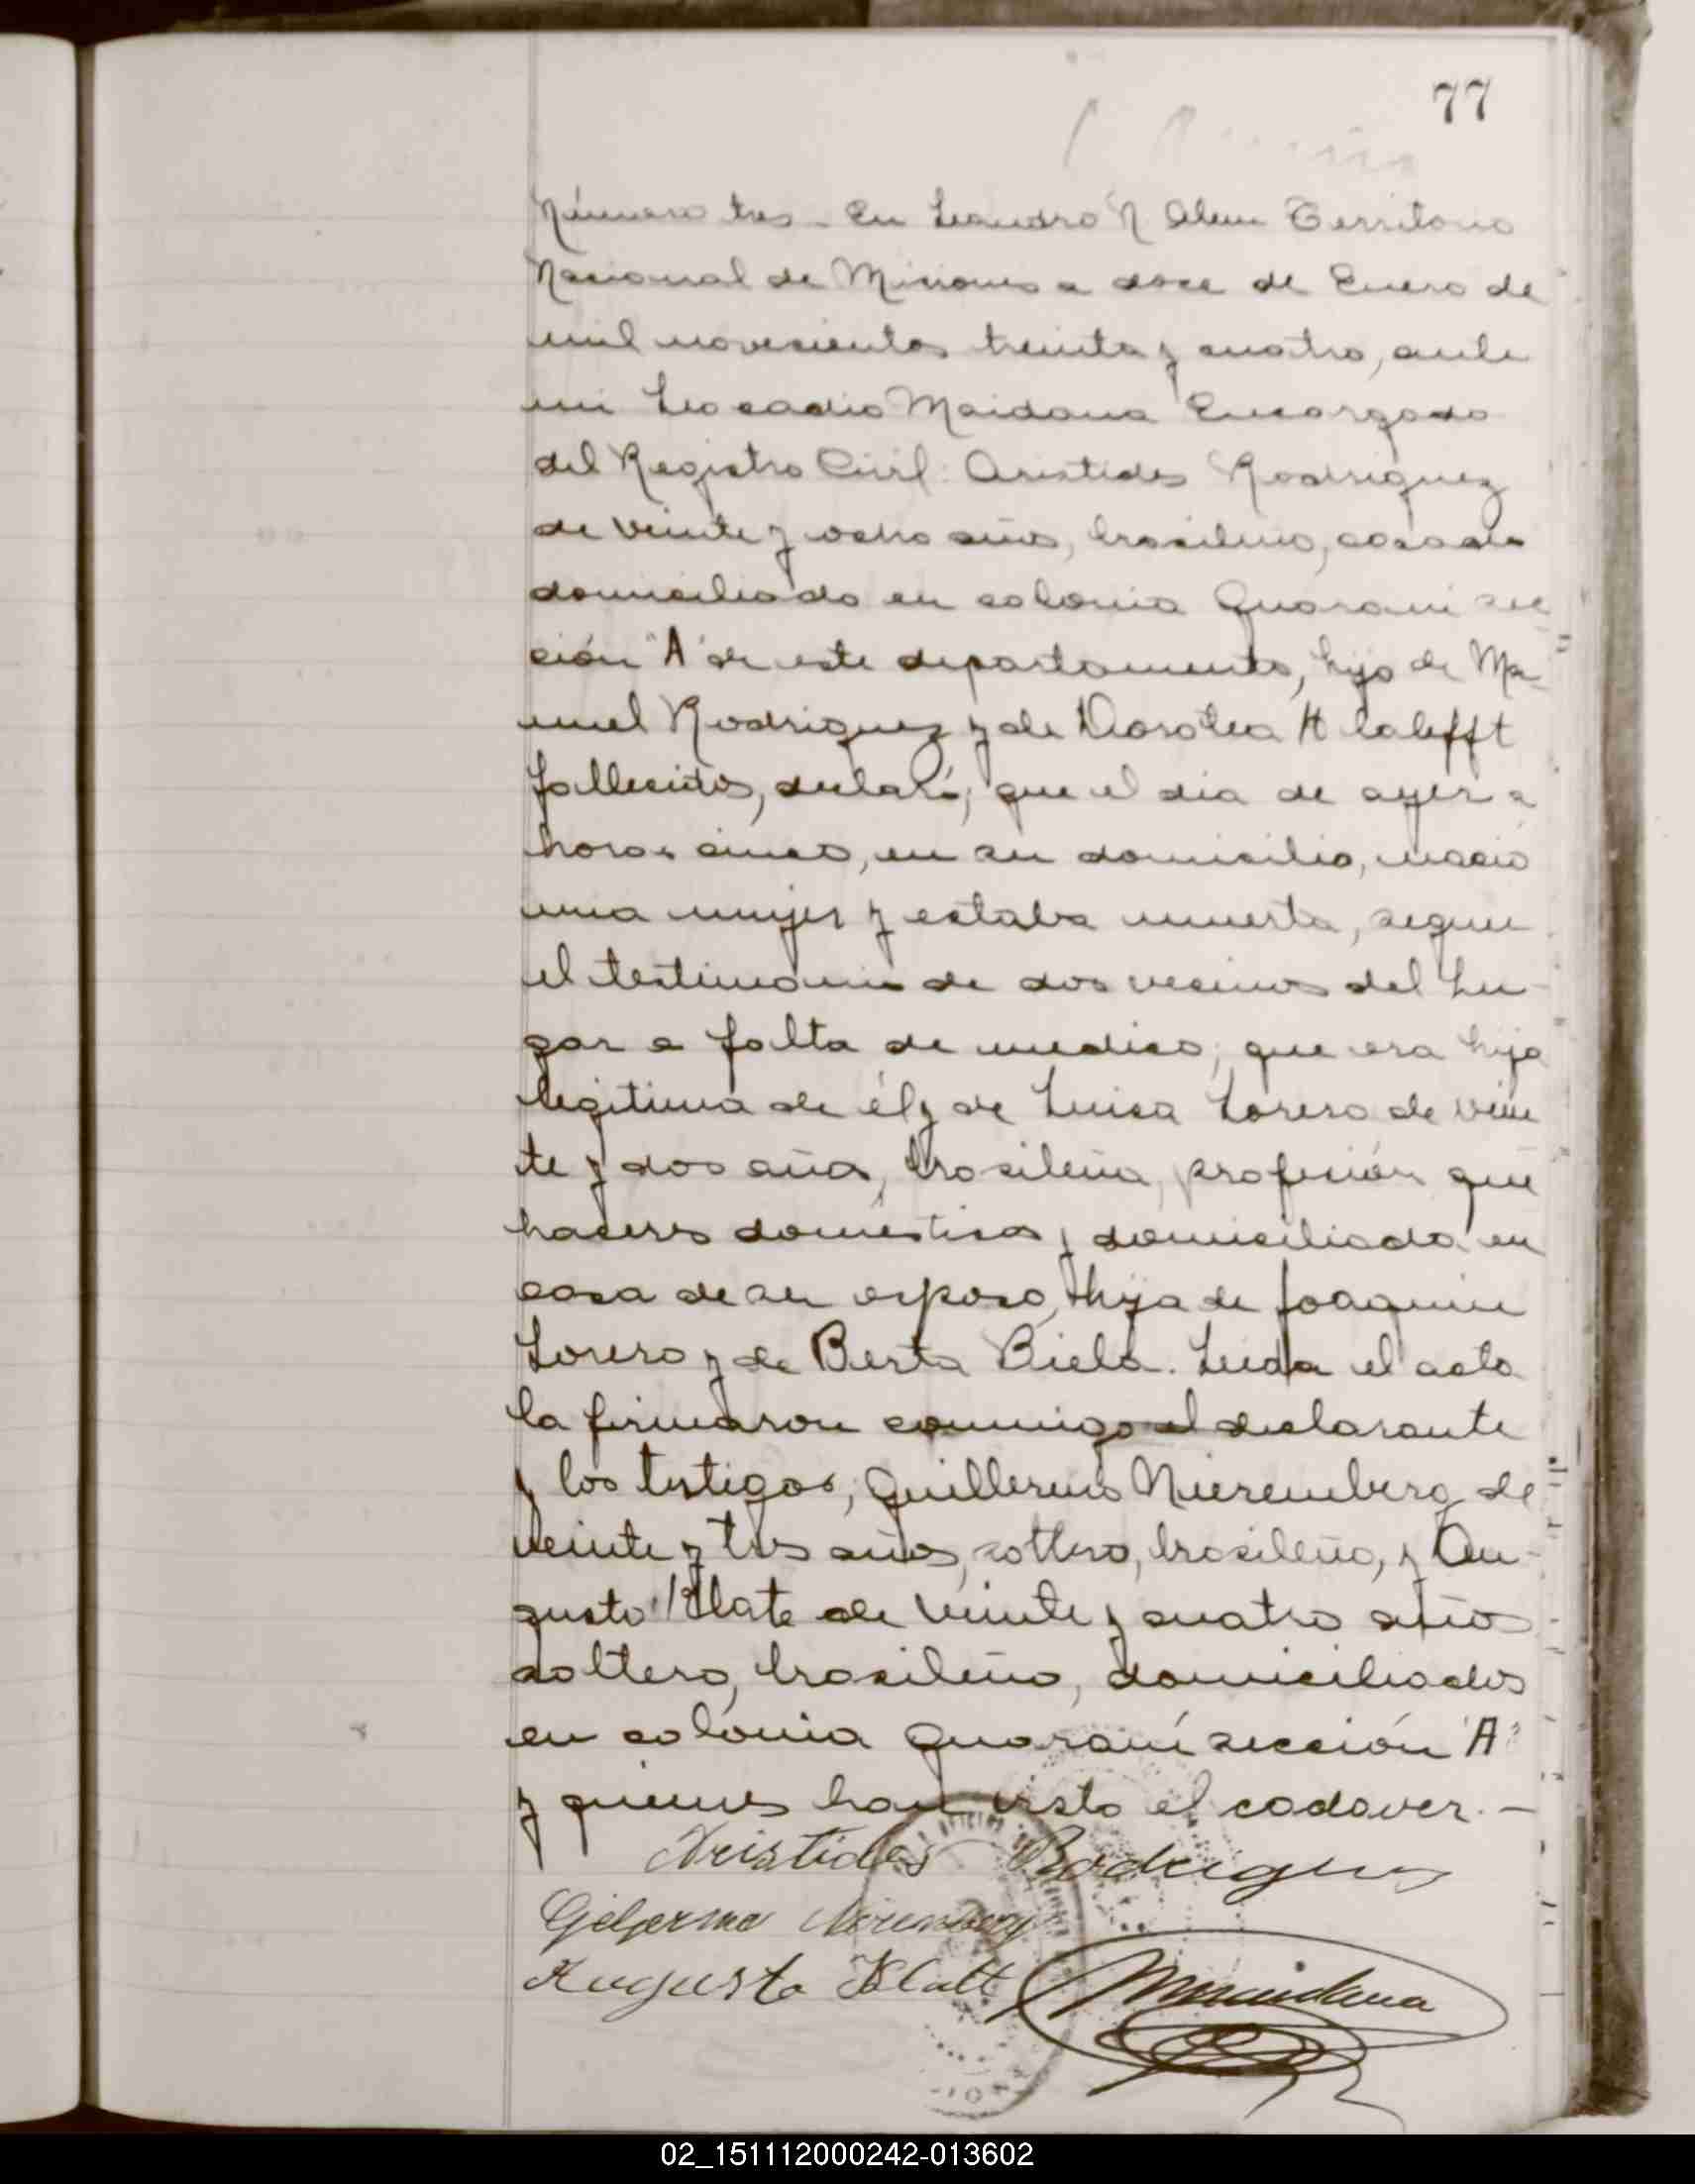 77
Número tres - En Leandro N Alem Territorio
Nacional de Misiones a doce de Enero de
mil novecientos treinta y cuatro, ante
mi Leocadio Maidana Encargado
del Registro Civil: Aristides Rodriguez
de veinte y ocho años, brasileño, casado
domiciliado en colonia Guarani sec
ción "A" de este departamento, hijo de Ma-
nuel Rodriguez y de Dorotea
fallecidos, declaró; que el dia de ayer a
horas cinco, en su domicilio, nació
una mujer y estaba muerta, segun
el testimonio de dos vecinos del Lu-
gar a falta de medico; que era hija
legitima de él y de Luisa Lorero de vein
te y dos años, brasileña, profesión que
haceres domésticos, domiciliada en
casa de su esposo, hija de Joaquin
Lorero y de Berta Biela. Leida el acta
la firmaron conmigo el declarante
y los testigos, Guillermo Nieremberg de
veinte y tres años, soltero, brasileño, y Au-
gusto Klate de veinte y cuatro años
soltero, brasileño, domiciliados
en colonia Guaraní sección "A"
y quienes han visto el cadaver. -
Aristides Rodrigues
Augusto Klatt
Maidana
02_151112000242-013602